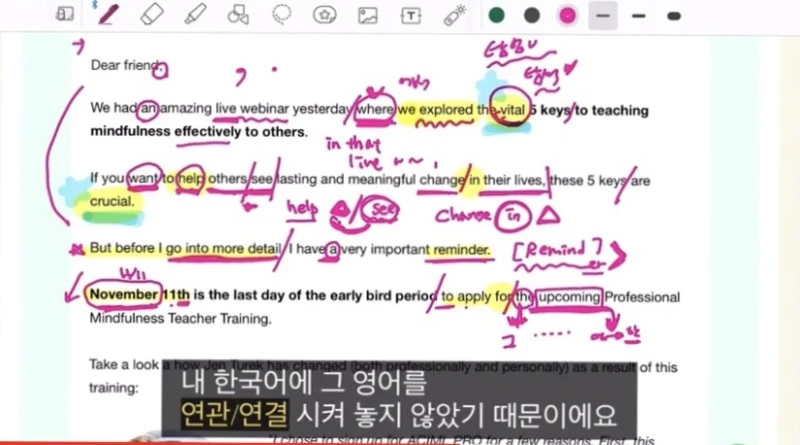 Dear friend,
We had an amazing live webinar yesterday where we explored the vital 5 keys to teaching
mindfulness effectively to others.
in that
live
If you want to help others see lasting and meaningful change in their lives, these 5 keys are
crucial.
help see change in
But before I go into more detail I have a very important reminder. [Remind
er
November 11th is the last day of the early bird period to apply for the upcoming Professional
Mindfulness Teacher Training.
그
Take a look a how Jen Turek has changed (both professionally and personally) as a result of this
training:
내 한국어에 그 영어를
연관/연결 시켜 놓지 않았기 때문이에요
"I chose to sign up for ACIML PRO for a few reasons. First, this